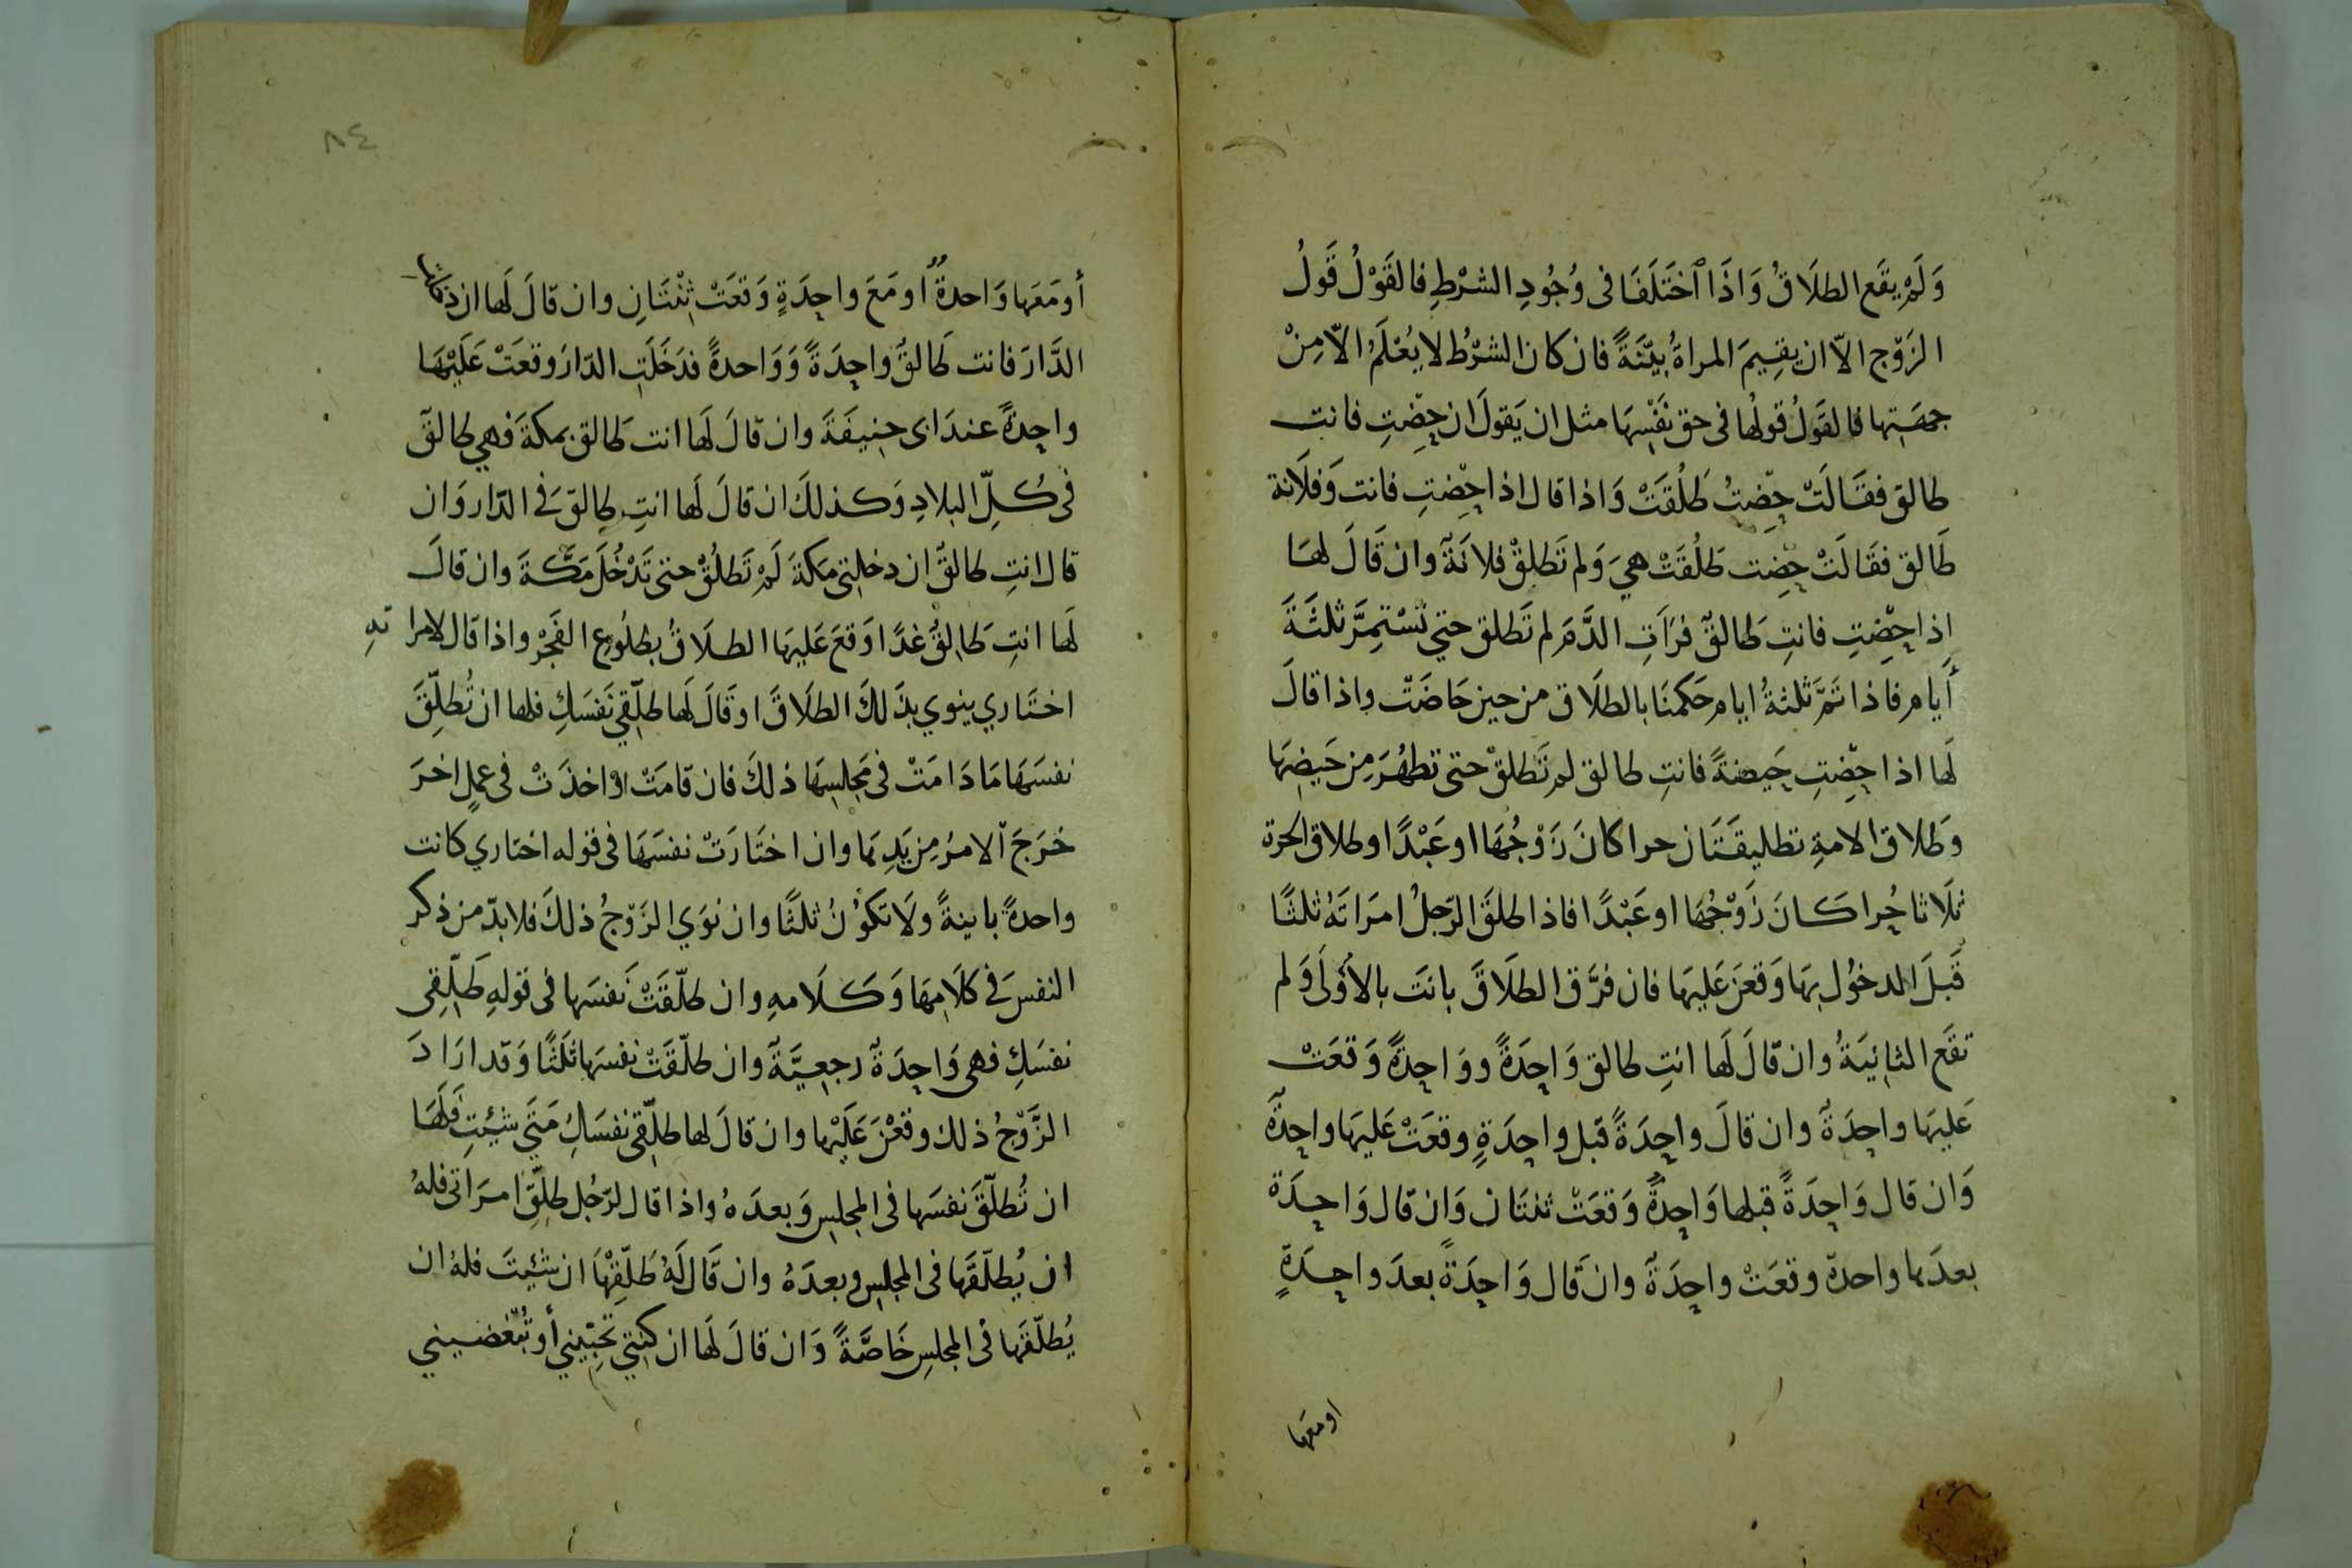 وَلَمْ يقَع الطلَاقُ وَاذَا ٱختَلَفَا فى وُجُودِ الشرْطِ فالقَوْلُ قَولُ
الزَوّج الاّ ان يقِيمَ المراةُ بيّنَةً فان كان الشرْط لا يُعْلَمُ الاّ مِنْ
جهَتِها فالقَولُ قولُها فى حق نَفْسِهَا مثل ان يَقولَ ان حِضْتِ فانت
طالق فقَالَتْ حِضتُ طَلُقَتْ وَاذا قال اذا حِضتِ فانت وَفلَانة
طَالق فقَالَتْ حِضت طَلُقَتْ هيَ وَلم تَطلقْ فلانَةٌ وان قَالَ لهَا
اذا حِضْتِ فانتِ طَالقٌ فرَاَتِ الدَّمَ لم تَطلق حتي تَسْتمِرَّ ثلثَةَ
أيام فاذا تمَّ ثلثةُ ايام حَكمنَا بالطلَاق من حين حَاضَتْ واذا قالَ
لَها اذا حِضْتِ حَيضةً فانتِ طالق لم تَطلقْ حتى تطهُرَ مِن حَيضِهَا
وَطلاق الامةِ تطليقَتَان حرا كانَ زَوْجُهَا او عَبْدًا وطلاق الحرة
ثلَاثا حُرا كَانَ زَوْجُهَا او عَبْدًا فاذا طلقَ الرّجلُ امرَاتَهُ ثلثًا
قَبلَ الدخُول بهَا وَقعنَ عَليهَا فان فرَّق الطلَاقَ بانَت بالأولَى وَلم
تقَع الثانيَةُ وان قالَ لَها انتِ طالق وَاحِدَةً ووَاحِدةً وَقعَتْ
عَليهَا واحِدَةٌ وان قالَ واحِدَةً قبل واحِدَةٍ وقعَتْ عَليهَا واحِدةٌ
وَان قال وَاحِدَةً قبلها وَاحِدةٌ وَقعَتْ ثنتَان وَان قال وَاحِدَة
بعدَها واحدة وقعَتْ واحِدَةٌ وان قال وَاحِدَةً بعدَ واحِدَةٍ
او معها
٨٤
أو مَعَها وَاحدةٌ او مَعَ واحِدَةٍ وَقعَتْ ثِنْتَانِ وان قالَ لَها ان دخلتِ
الدَّارَ فانت طَالقٌ واحِدَةً وَوَاحدةً فدَخَلَتِ الدّارَ وقعَتْ عَلَيْهَا
واحِدةٌ عندَ ابى حنِيفَةَ وان قالَ لَها انت طَالق بمكةَ فهي طالقٌ
فى كُلِّ البلادِ وَكذلكَ ان قالَ لَها انتِ طالقٌ فى الدّار وَان
قال انتِ طالقٌ ان دخلتِى مكةَ لَمْ تَطلُقْ حتى تَدْخُلَ مَكَّةَ وان قالَ
لَها انتِ طَالِقٌ غدًا وَقعَ عَليهَا الطلَاقُ بطلُوع الفَجْر واذا قال لامراتهِ
اختَاري ينوي بذَلكَ الطلَاقَ او قَالَ لَها طلّقِي نَفسَكِ فلها ان تُطلّقَ
نفسَهَا مَا دَامَتْ فى مَجلسِهَا ذلكَ فان قامَتْ اوْ اخذَتْ فى عملٍ اخرَ
خَرَجَ الامرُ مِن يَدِهَا وان اختَارَتْ نفسَهَا فى قوله اختاري كانت
واحدةً باينةً ولَا تكوُنُ ثلثًا وان نوَي الزَوّجُ ذلكَ فلا بدّ من ذكر
النفسَ فى كلَامِهَا وَكَلَامهِ وان طلّقَتْ نَفسَها فى قولهِ طَلِّقِى
نفسَكِ فهى وَاحِدَةٌ رجعِيَّةٌ وان طلّقَتْ نفسَها ثلَثًا وَقد ارَادَ
الزَّوّجُ ذلك وقعْنَ عَلَيْها وان قالَ لها طلّقِى نفسَكِ مَتَى شئِتِ فَلَهَا
ان تُطلّقَ نفسَها فى المجلسِ وَبعدَهُ واذا قال لرّجُل طلّقِ امرَاتى فلهُ
ان يُطلّقَها فى المجلسِ وبعدَهُ وان قَال لَهُ طَلّقِهَا ان شئِتَ فلهُ ان
يُطلّقَها فى المجلسِ خَاصَّةً وَان قالَ لَها ان كنتِي تحِبّيني أو تُبْغضيني